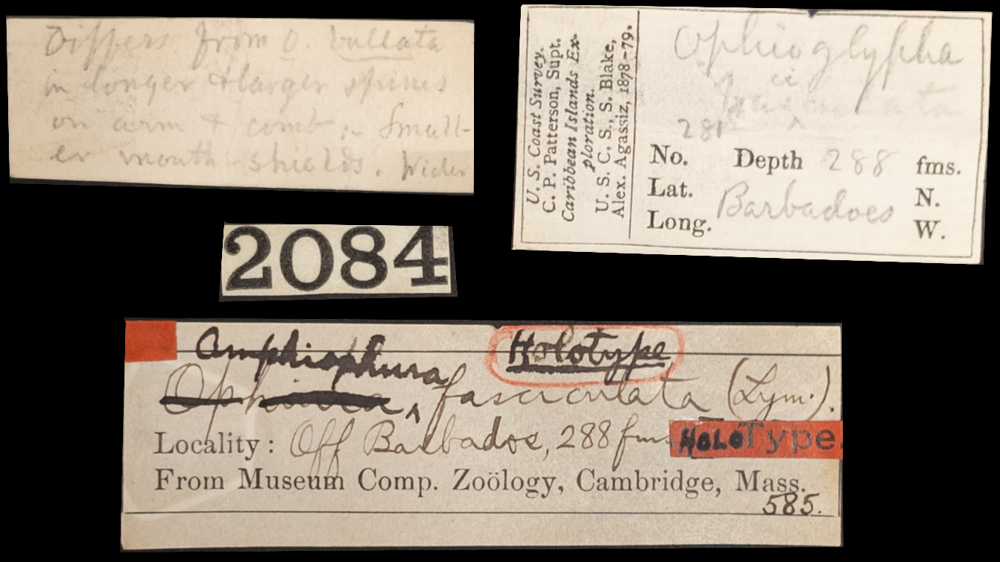 Differs from O. bullata
in longer & larger spines
on arm & comb. Small-
er mouth shields. Wider
U. S. Coast Survey.
C. P. Patterson, Supt.
Caribbean Islands Ex-
ploration.
U. S. C. S., S. Blake,
Alex. Agassiz, 1878-79.
Ophioglypha
281
No. Depth 288 fms.
Lat. N.
Barbadoes
Long. W.
2084
Amphiophiura Holotype
fasciculata (Lym.).
Locality: Off Barbados, 288 fms
HOLOType.
From Museum Comp. Zoölogy, Cambridge, Mass.
585.